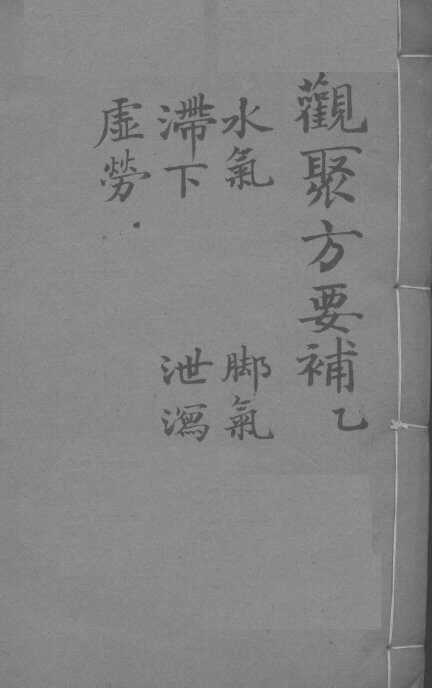 觀聚方要補 乙
水氣 脚氣
滯下 泄瀉
虛勞